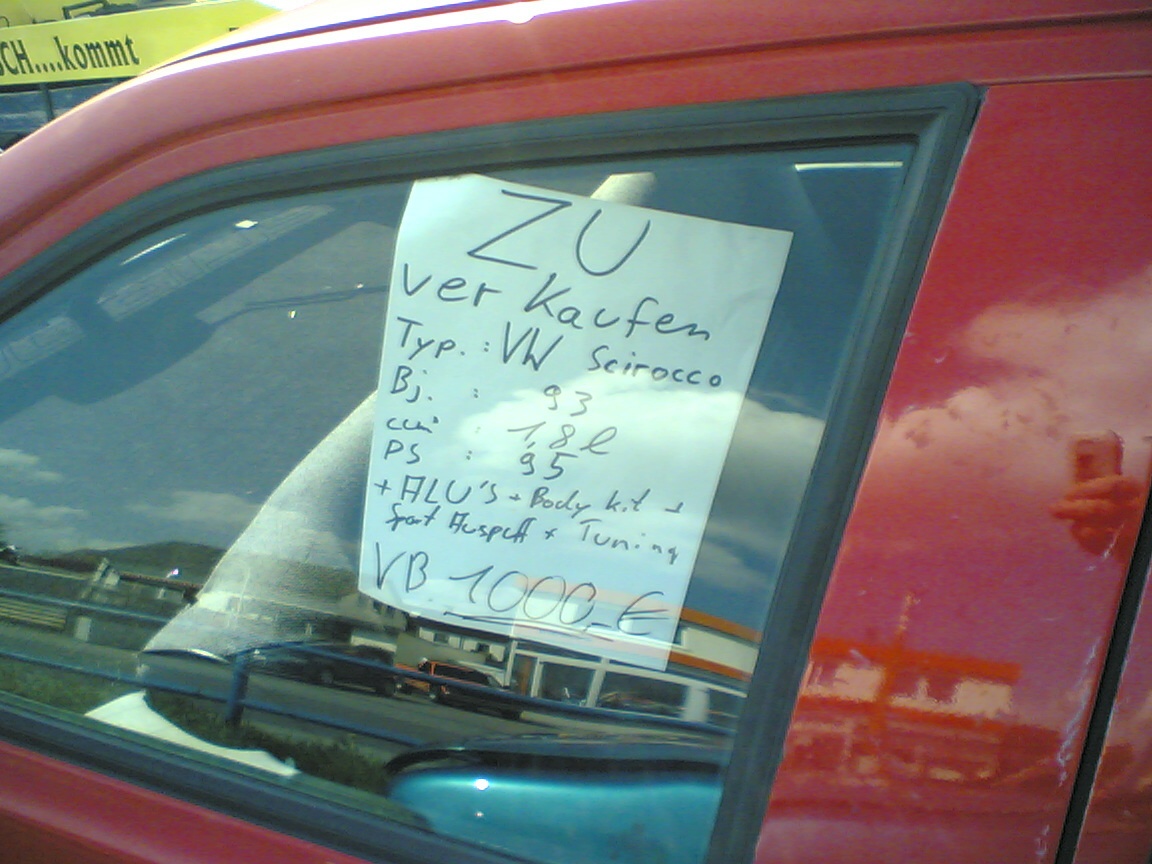 CH....kommt
ZU
ver Kaufen
Typ. : VW Scirocco
Bj. : 93
ccm : 1,8 l
PS : 95
+ ALU'S + Body kit +
Sport Auspuff + Tuning
VB 1000,- €